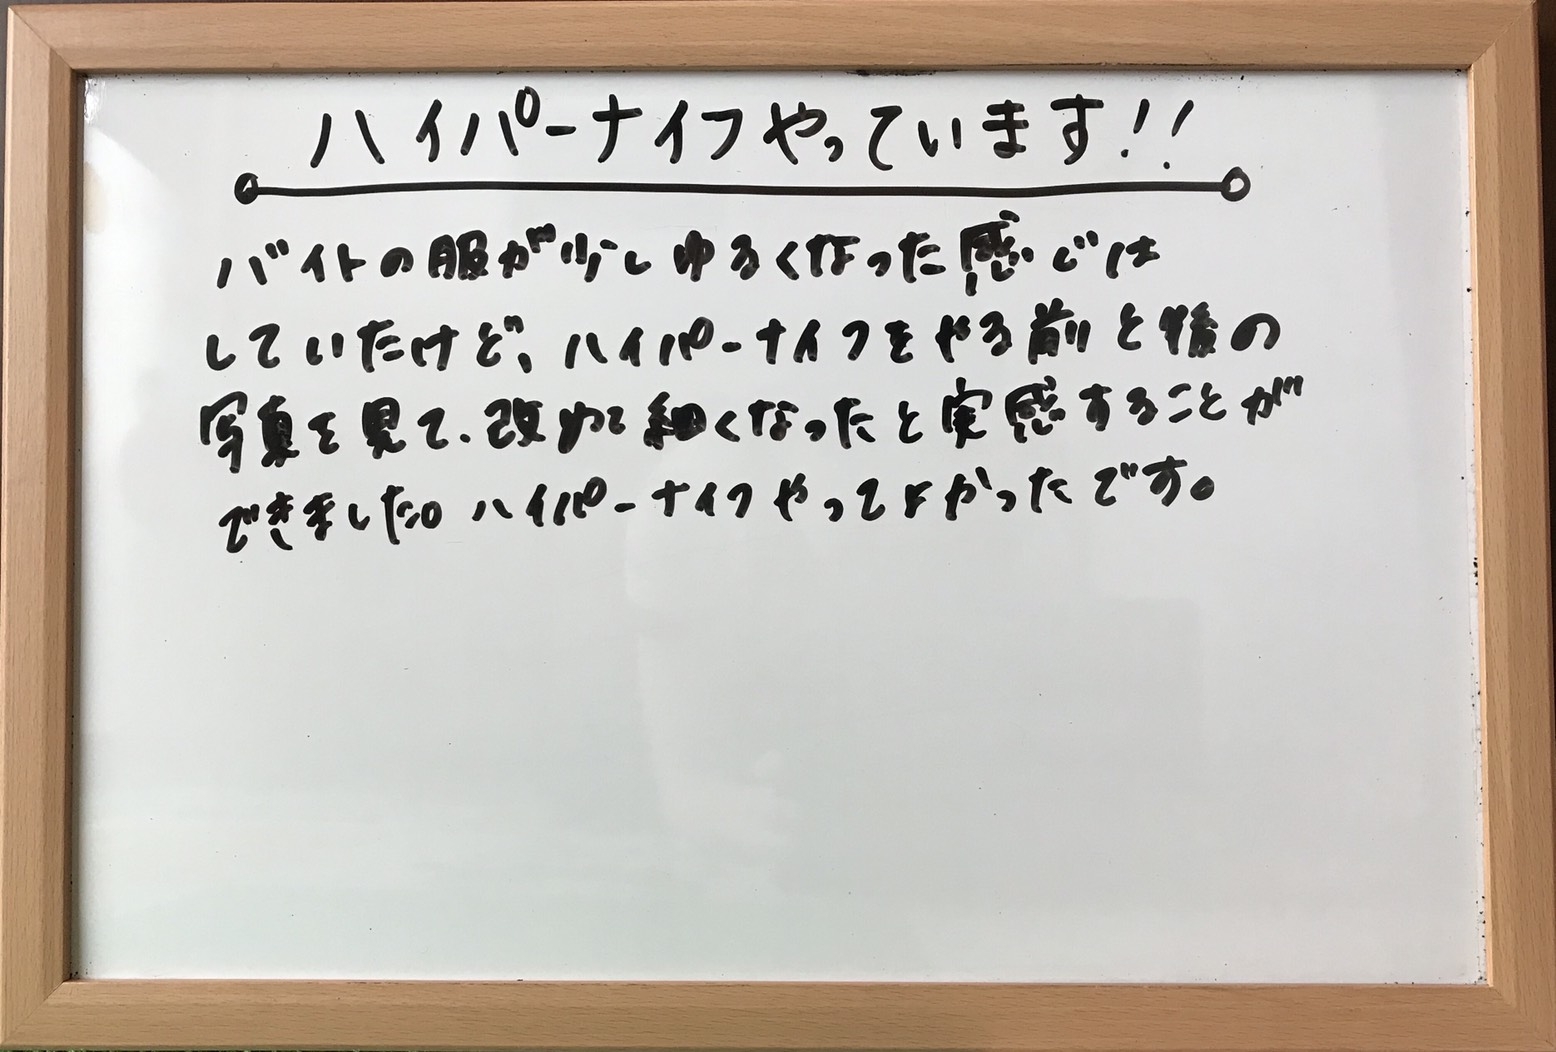 ハイパーナイフやっています!!
バイトの服が少しゆるくなった感じは
していたけど、ハイパーナイフをやる前と後の
写真を見て、改めて細くなったと実感することが
できました。ハイパーナイフやってよかったです。